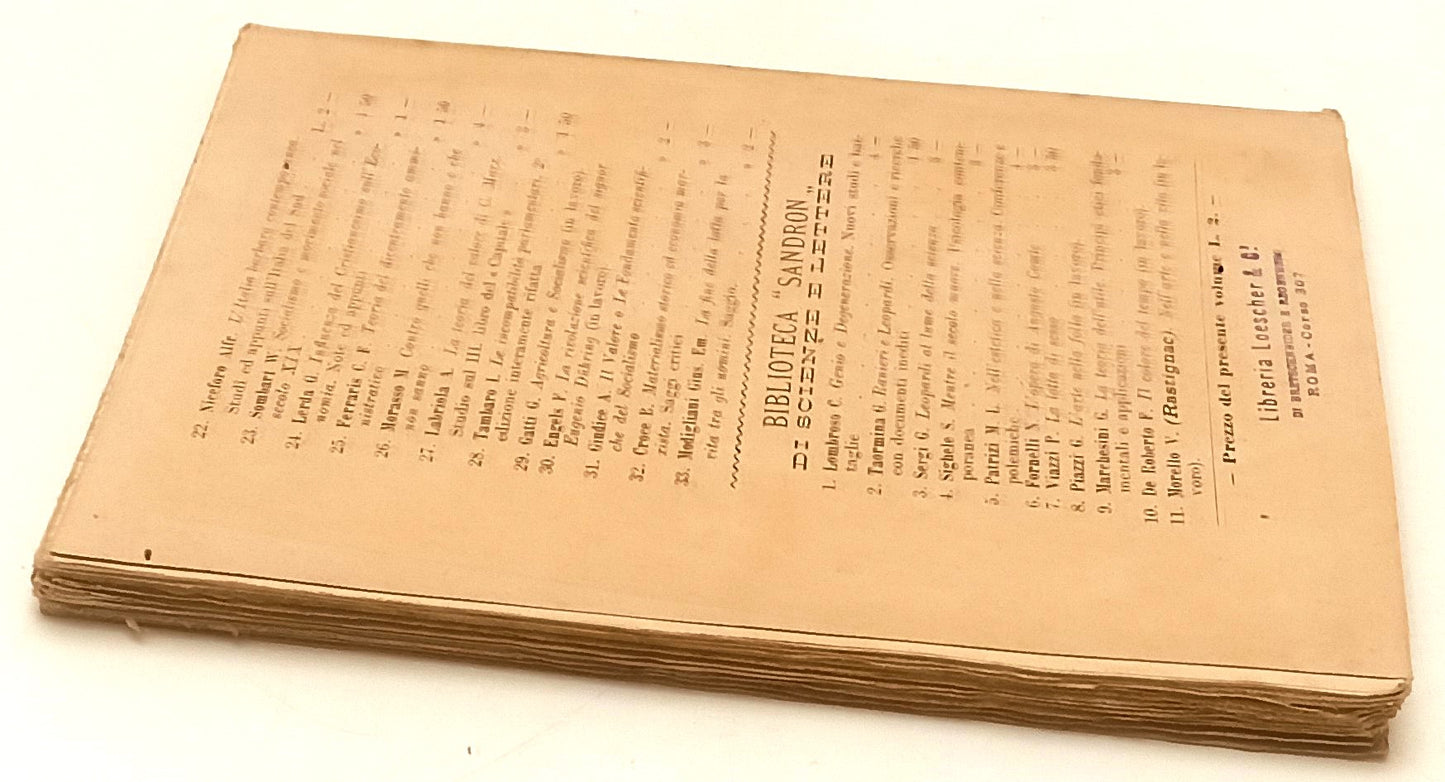 22. Niceforo Alfr. L'Italia barbara contemporanea
Studi ed appunti sull'Italia del Sud . . L. 2 —
23. Sombart W. Socialismo e movimento sociale nel
secolo XIX . . . . » 1 50
24. Lerda G. Influenza del Cristianesimo sull'Eco-
nomia. Note ed appunti . . » 1 —
25. Ferraris C. F. Teoria del dicentramento ammi-
nistrativo . . . » 1 50
26. Morasso M. Contro quelli che non hanno e che
non sanno . . . » 4 —
27. Labriola A. La teoria del valore di C. Marx.
Studio sul III. libro del « Capitale » » 3 —
28. Tambaro I. Le incompatibilità parlamentari. 2ª
edizione interamente rifatta . . » 1 50
29. Gatti G. Agricoltura e Socialismo (in lavoro).
30. Engels F. La rivoluzione scientifica del signor
Eugenio Dühring (in lavoro)
31. Giudice A. Il Valore o Le Fondamenta scientifi-
che del Socialismo . . . » 2 —
32. Croce B. Materialismo storico ed economia mar-
xista. Saggi critici . . . » 3 —
33. Modigliani Gius. Em. La fine della lotta per la
vita tra gli uomini. Saggio. . . » 2 —
BIBLIOTECA "SANDRON
DI SCIENZE E LETTERE„
1. Lombroso C. Genio e Degenerazione. Nuovi studi e bat-
taglie . . . 4 —
2. Taormina G. Ranieri e Leopardi. Osservazioni e ricerche
con documenti inediti . . 1 50
3. Sergi G. Leopardi al lume della scienza . 3 —
4. Sighele S. Mentre il secolo muore. Psicologia contem-
poranea . . . 3 —
5. Patrizi M. L. Nell'estetica e nella scienza. Conferenze e
polemiche
6. Fornelli N. L'opera di Augusto Comte
7. Viazzi P. La lotta di sesso
8. Piazzi G. L'arte nella folla (in lavoro).
9. Marchesini G. La teoria dell'utile. Principi etici fonda-
mentali e applicazioni
10. De Roberto F. Il colore del tempo (in lavoro).
11. Morello V. (Rastignac). Nell'arte e nella vita (in la-
voro).
— Prezzo del presente volume L. 2. —
Libreria Loescher & C.º
DI BRETSCHNEIDER E REGENBERG
ROMA - Corso 307